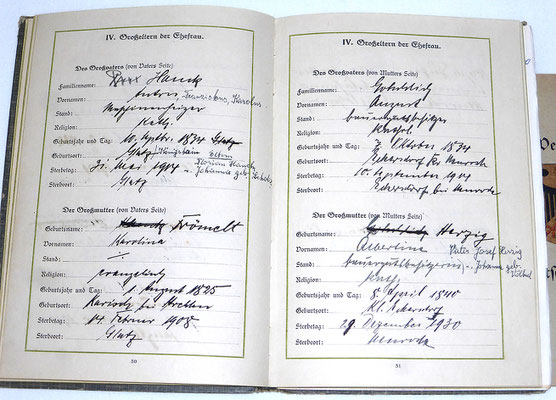 IV. Großeltern der Ehefrau.
Des Großvaters (von Vaters Seite)
Familienname: Hauck
Vornamen: Franziskus, Karolus
Stand:
Religion: Kath.
Geburtsjahr und Tag: 10. Septbr. 1834 Glatz
Geburtsort: Glatz Eltern
Sterbetag: 31. Mai 1904 u. Johanna geb.
Sterbeort: Glatz
Der Großmutter (von Vaters Seite)
Geburtsname: Frömelt
Vornamen: Karolina
Stand:
Religion: evangelisch
Geburtsjahr und Tag: 1. August 1825
Geburtsort: bei Strehlen
Sterbetag: 14. Februar 1908
Sterbeort: Glatz
50
IV. Großeltern der Ehefrau.
Des Großvaters (von Mutters Seite)
Familienname:
Vornamen: August
Stand: Bauergutsbesitzer
Religion: Kathol.
Geburtsjahr und Tag: 7. Oktober 1834
Geburtsort: Eckersdorf Kr. Neurode
Sterbetag: 10. September 1904
Sterbeort: Eckersdorf bei Neurode
Der Großmutter (von Mutters Seite)
Geburtsname: Herzig
Vornamen: Albertine Vater Josef Herzig
Stand: Bauergutsbesitzerin u. Johanna geb.
Religion: Kath.
Geburtsjahr und Tag: 8. April 1840
Geburtsort: Kl. Eckersdorf
Sterbetag: 29. Dezember 1930
Sterbeort: Neurode
51